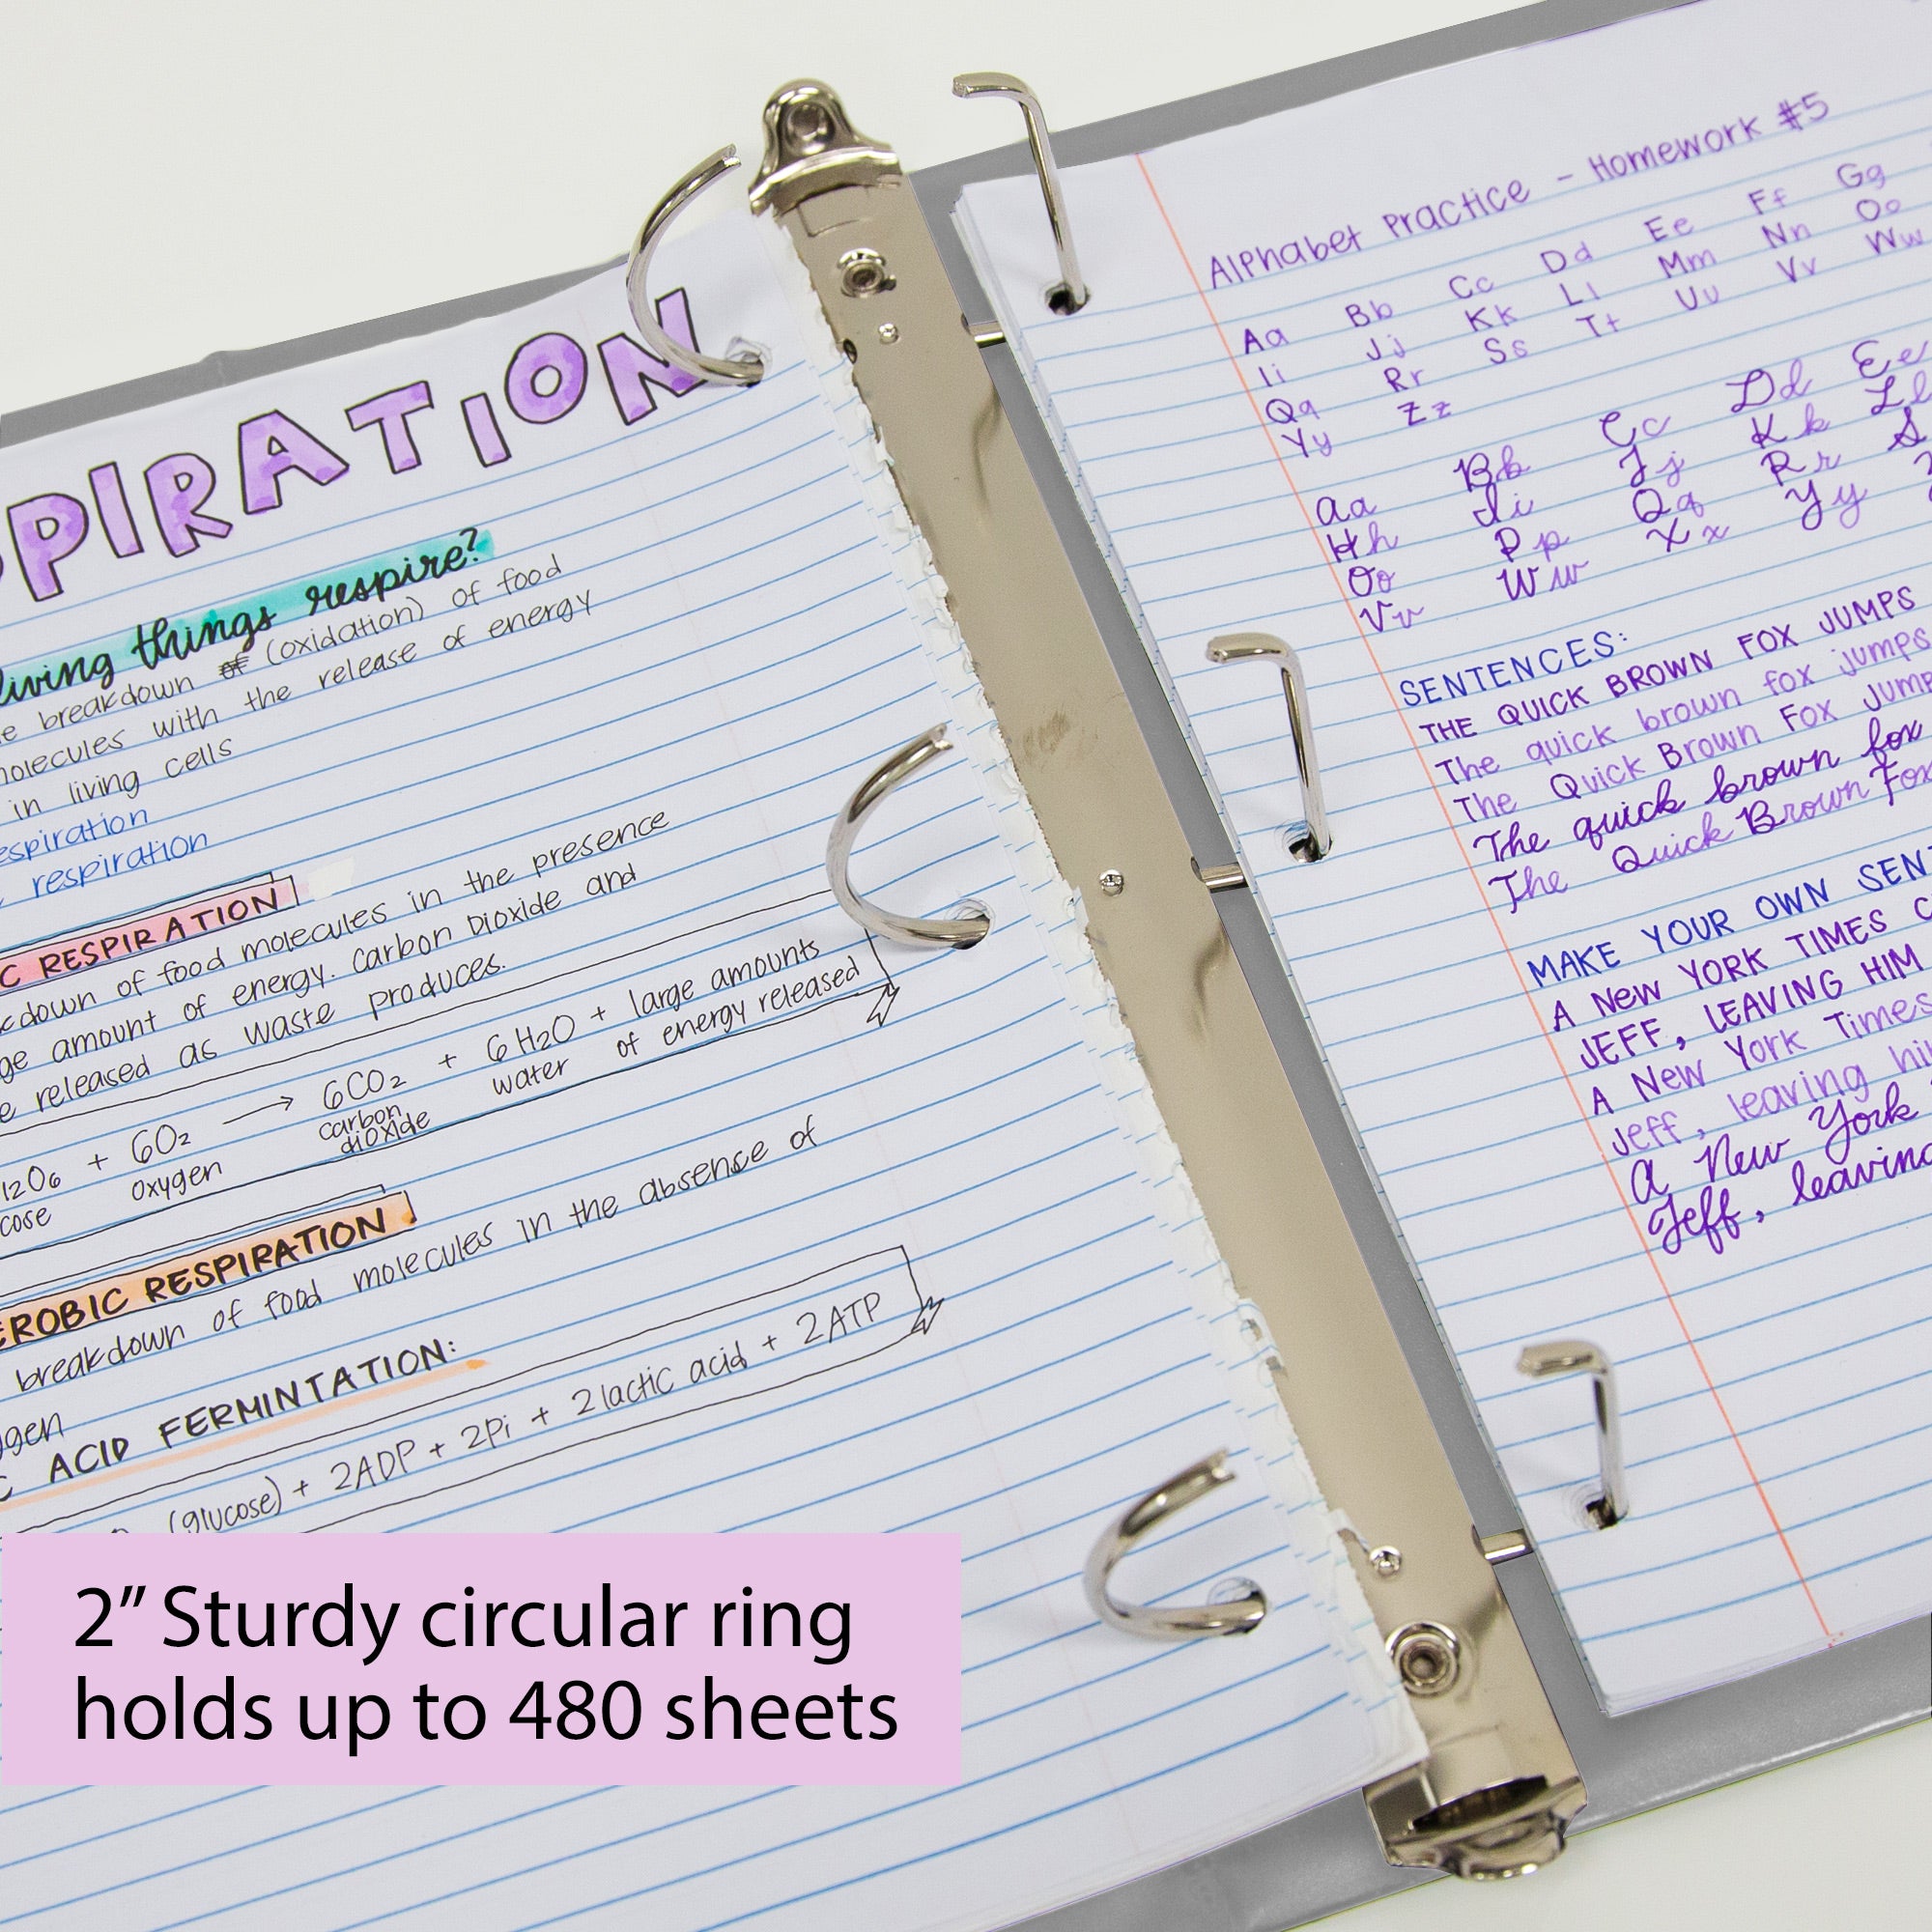 PIRATION
living things respire?
breakdown of (oxidation) of food
molecules with the release of energy
in living cells
respiration
respiration
C RESPIRATION
kdown of food molecules in the presence
ge amount of energy. Carbon Dioxide and
e released as waste produces.
12O6 + 6O2 → 6CO2 + 6H2O + large amounts
cose oxygen carbon dioxide water of energy released
EROBIC RESPIRATION
breakdown of food molecules in the absence of
ygen
C ACID FERMINTATION:
(glucose) + 2ADP + 2Pi + 2 lactic acid + 2ATP
Alphabet Practice - Homework #5
Aa Bb Cc Dd Ee Ff Gg
Ii Jj Kk Ll Mm Nn Oo
Qq Rr Ss Tt Uu Vv Ww
Yy Zz
Aa Bb Cc Dd Ee
Hh Ii Jj Kk Ll
Oo Pp Qq Rr S
Vv Ww Xx Yy
SENTENCES:
THE QUICK BROWN FOX JUMPS
The quick brown fox jumps
The Quick Brown Fox Jump
The quick brown fox
The Quick Brown Fox
MAKE YOUR OWN SENT
A NEW YORK TIMES C
JEFF, LEAVING HIM
A New York Times
Jeff, leaving hi
A New York
Jeff, leaving
2” Sturdy circular ring
holds up to 480 sheets